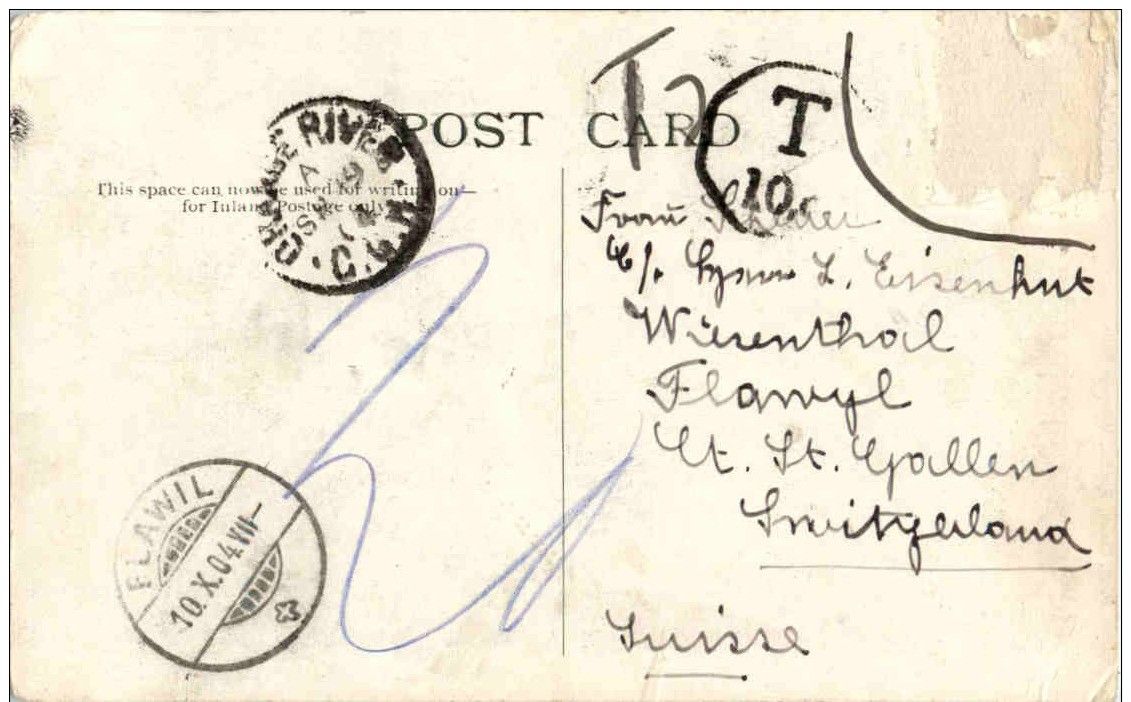 POST CARD
T
T
10.
This space can now be used for writing on—
for Inland Postage only.
ORANGE RIVER
SP
C.G.H.
Frau
C/o L. Eisenhut
Wiesenthal
Flawyl
Ct. St. Gallen
Switzerland
Suisse
FLAWIL
10.X.04.VII—